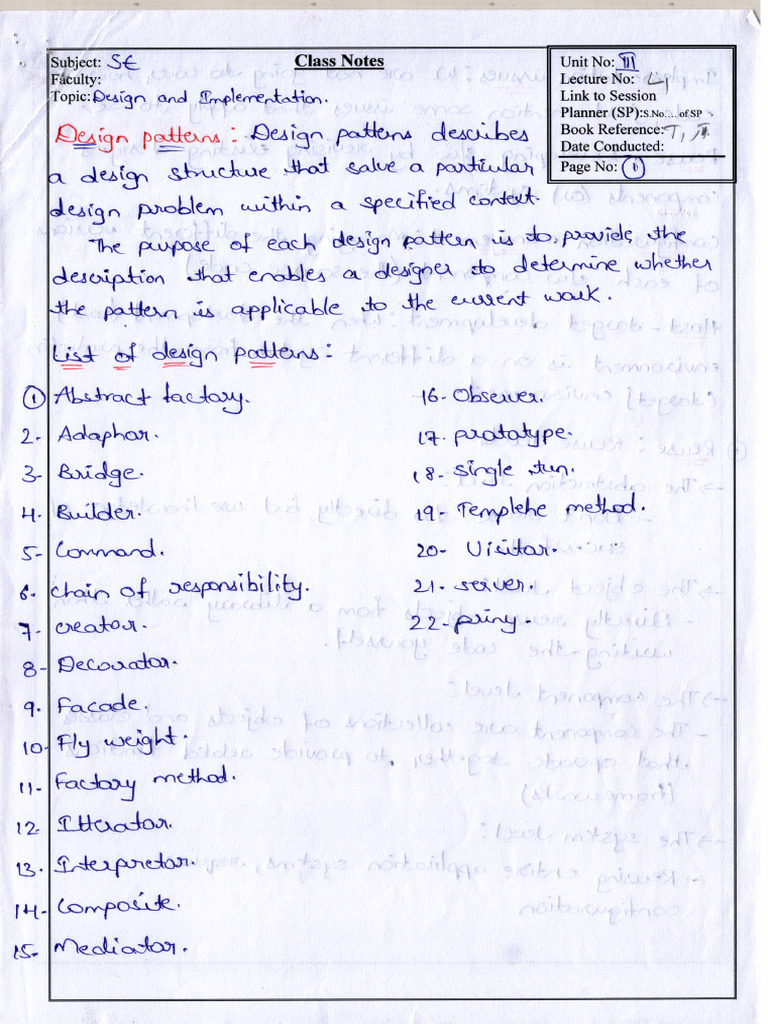 Subject: SE
Class Notes
Faculty:
Topic: Design and Implementation.
Unit No: III
Lecture No: 4
Link to Session
Planner (SP):S.No.... of SP
Book Reference: T1,
Date Conducted:
Page No: 1
Design patterns: Design patterns describes
a design structure that solve a particular
design problem within a specified context.
The purpose of each design pattern is to provide the
description that enables a designer to determine whether
the pattern is applicable to the current work.
List of design patterns:
1 Abstract factory.
2- Adaphor.
3- Bridge.
4- Builder.
5- Command.
6- Chain of responsibility.
7- creator.
8- Decorator.
9. Facade.
10- Fly weight.
11- Factory method.
12. Itterator.
13. Interpretor.
14- Composite.
15. Mediator.
16- Observer.
17. prototype.
18. single tun.
19. Templehe method.
20- Visitar.
21- server.
22- priny.